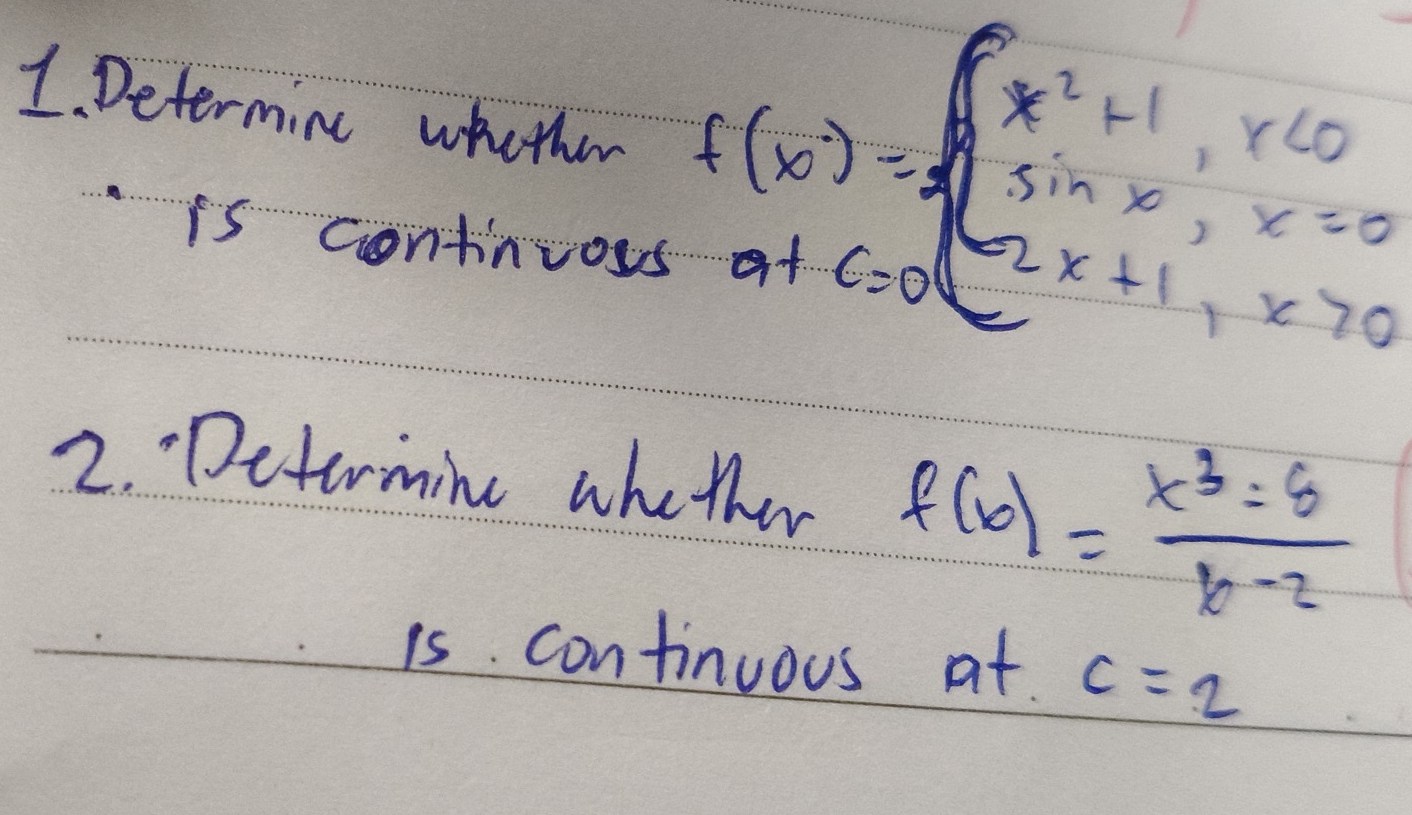 1. Determine whether f(x) = { x² + 1 , x < 0
sin x , x = 0
is continuous at c = 0
2x + 1 , x > 0
2. Determine whether f(x) = x³ - 8 / x - 2
is continuous at c = 2